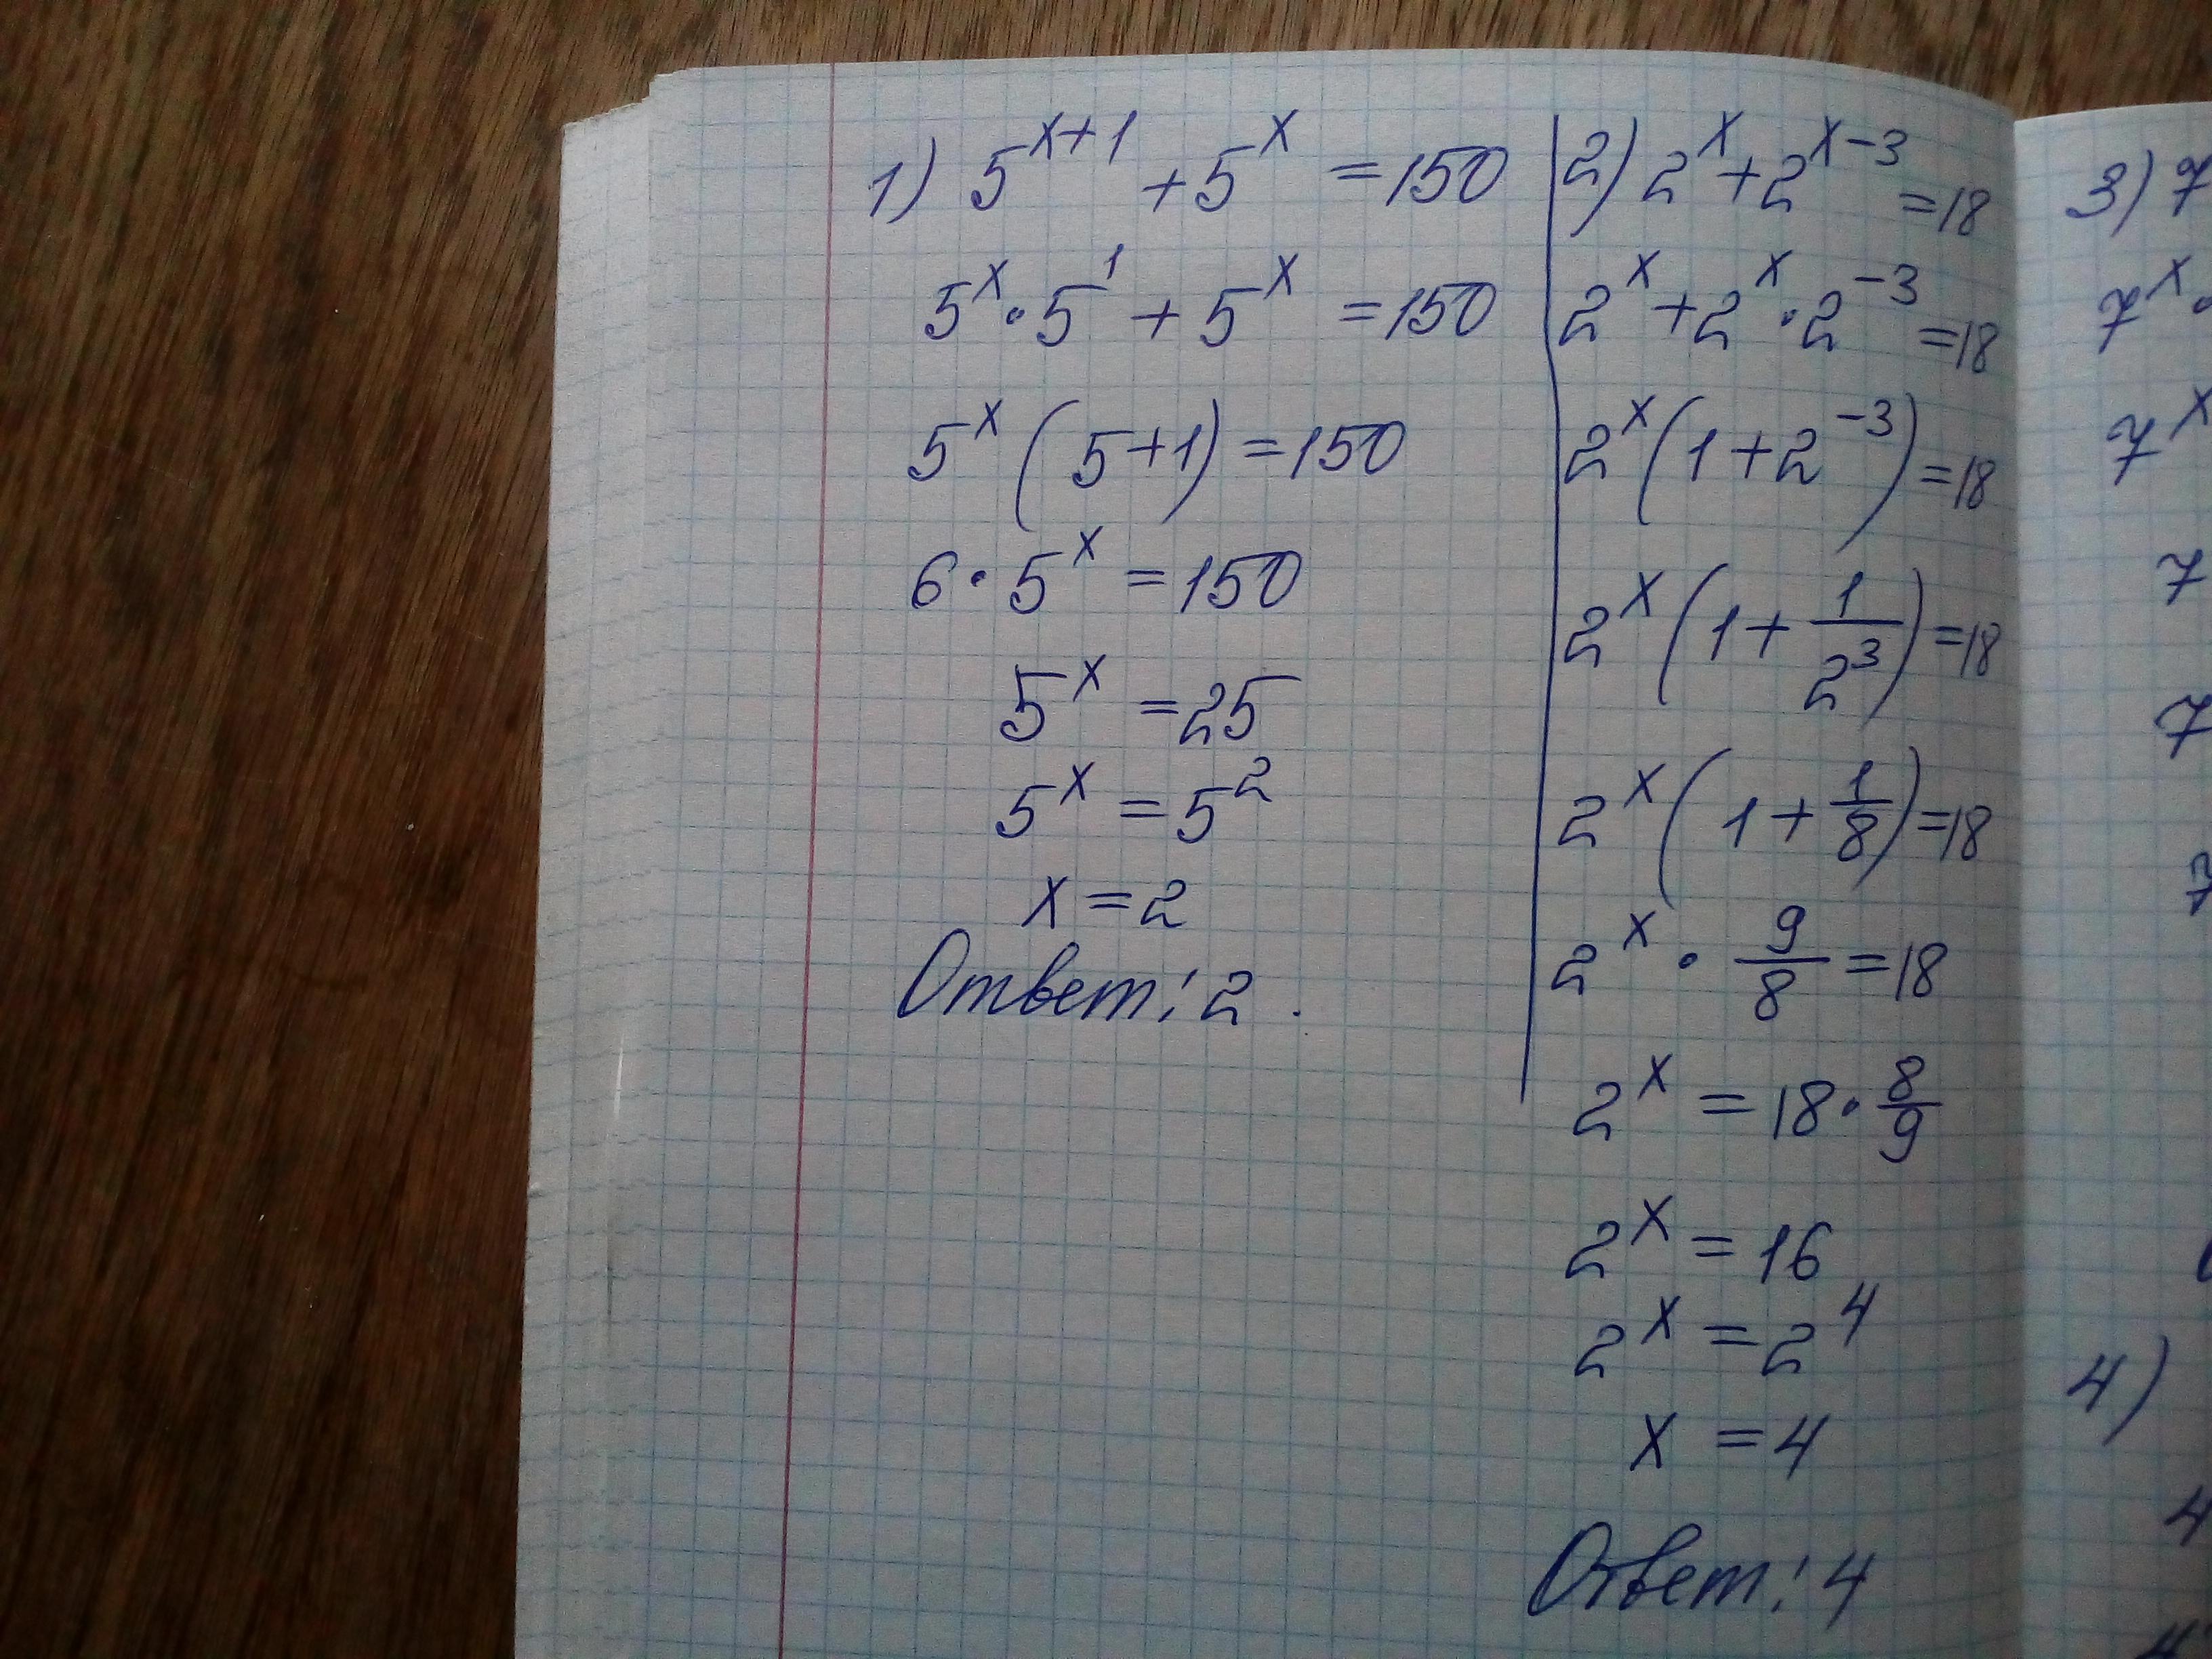 1) 5^{x+1} + 5^x = 150
5^x · 5^1 + 5^x = 150
5^x (5+1) = 150
6 · 5^x = 150
5^x = 25
5^x = 5^2
x = 2
Ответ: 2.
2) 2^x + 2^{x-3} = 18
2^x + 2^x · 2^{-3} = 18
2^x (1 + 2^{-3}) = 18
2^x (1 + \frac{1}{2^3}) = 18
2^x (1 + \frac{1}{8}) = 18
2^x · \frac{9}{8} = 18
2^x = 18 · \frac{8}{9}
2^x = 16
2^x = 2^4
x = 4
Ответ: 4
3) 7
7^x ·
7^x
7
7
7
4)
4